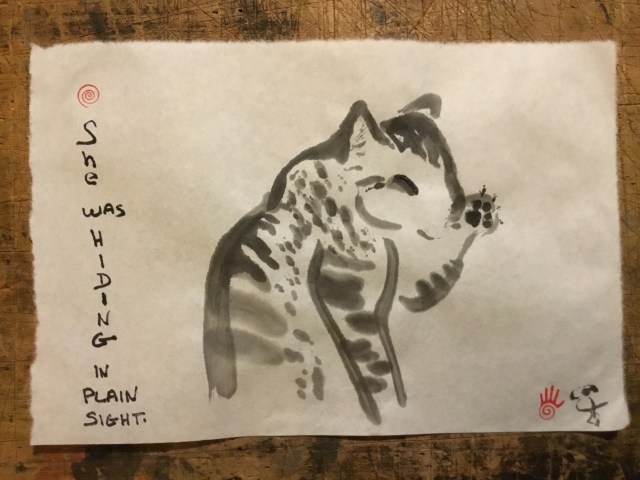 She
WAS
HIDING
IN
PLAIN
SIGHT.